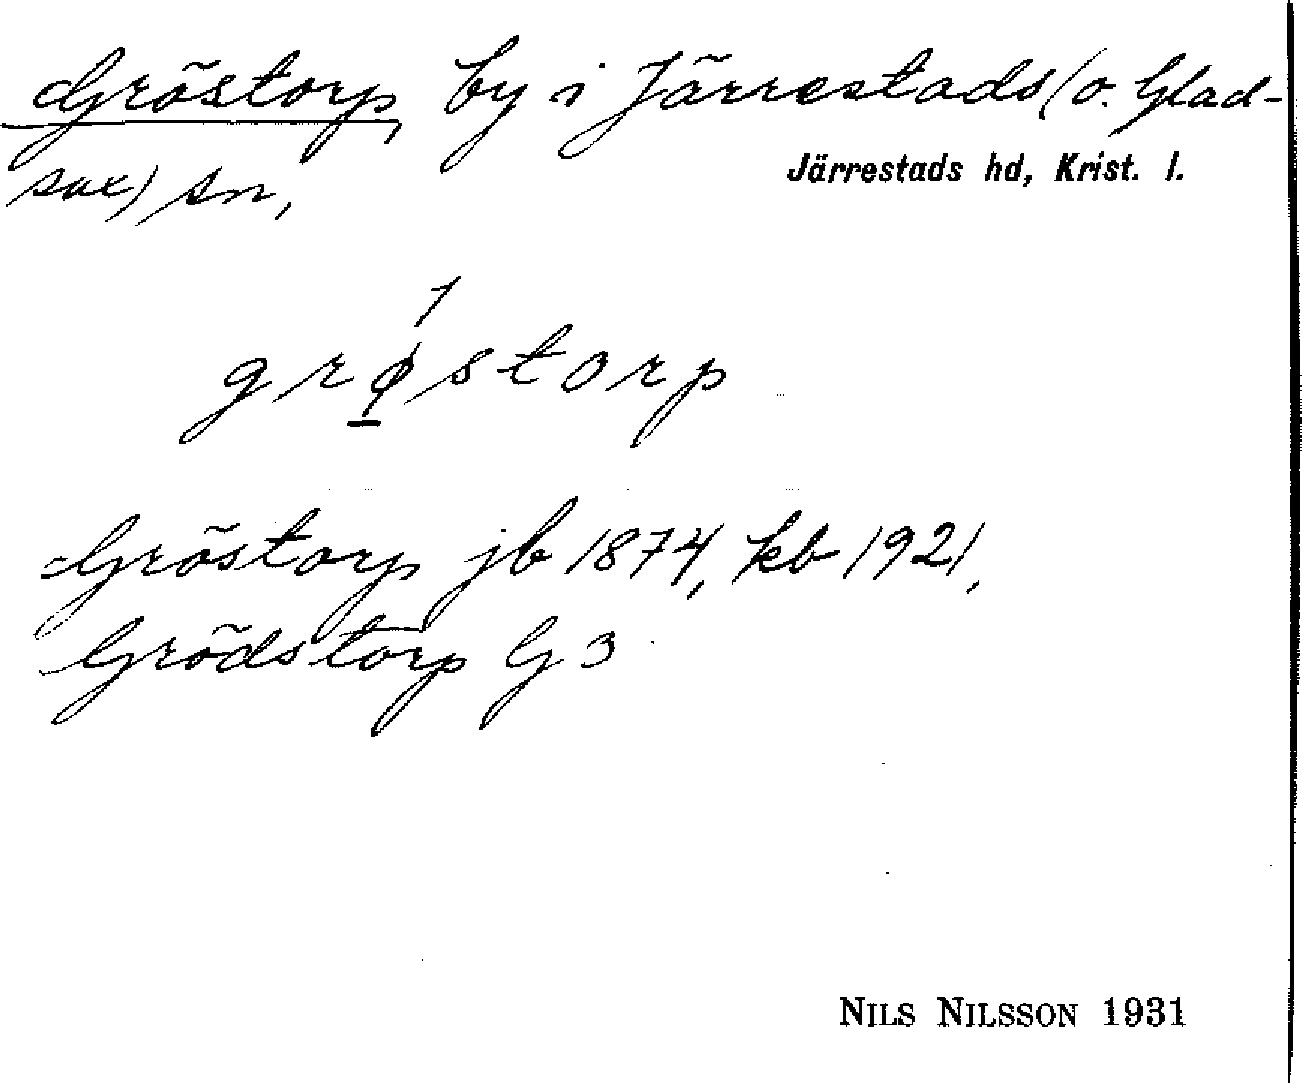 Gröstorp, by i Järrestads (o. Glad-
sax) sn,
Järrestads hd, Krist. l.
1
grø̠storp
Gröstorp jb 1874, kb 1921,
Grödstorp G 3
NILS NILSSON 1931